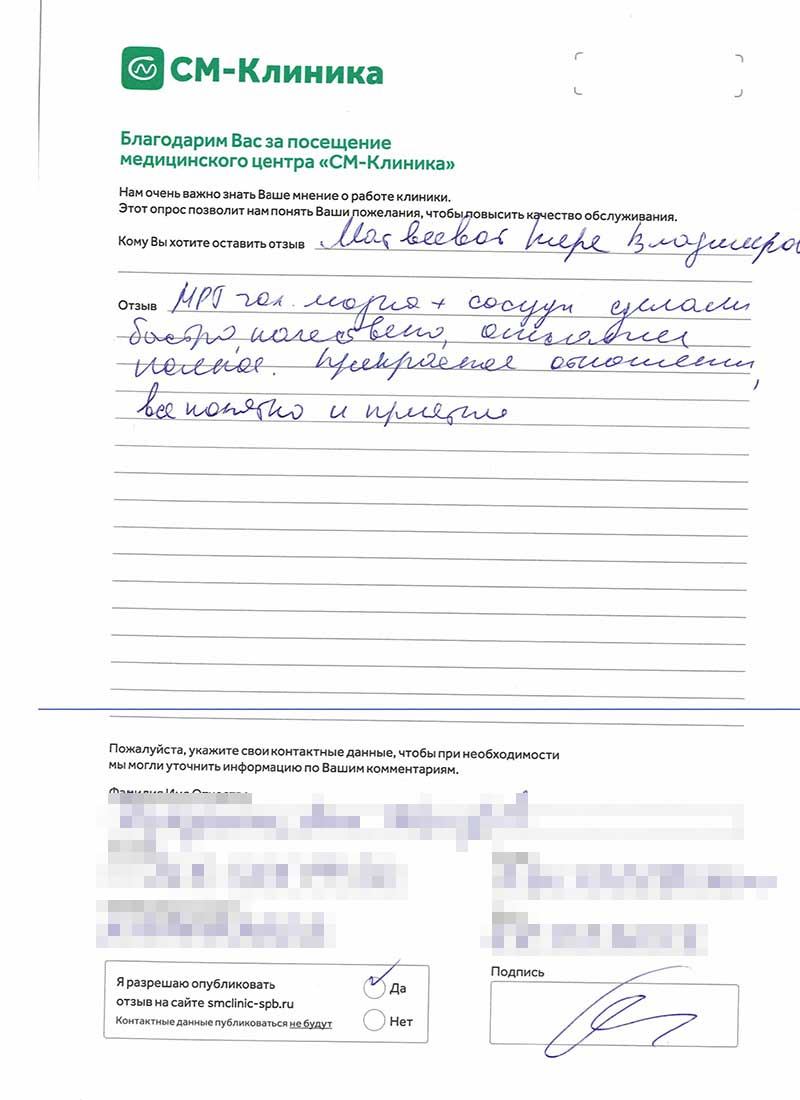 СМ-Клиника
Благодарим Вас за посещение
медицинского центра «СМ-Клиника»
Нам очень важно знать Ваше мнение о работе клиники.
Этот опрос позволит нам понять Ваши пожелания, чтобы повысить качество обслуживания.
Кому Вы хотите оставить отзыв Матвеевой Вере Владимиро
Отзыв МРТ гол. мозга + сосуды сделали
быстро, качествено, описание
полное. Прекрасное отношение,
все понятно и приятно
Пожалуйста, укажите свои контактные данные, чтобы при необходимости
мы могли уточнить информацию по Вашим комментариям.
Фамилия Имя Отчество
Я разрешаю опубликовать
отзыв на сайте smclinic-spb.ru
Контактные данные публиковаться не будут
Да
Нет
Подпись